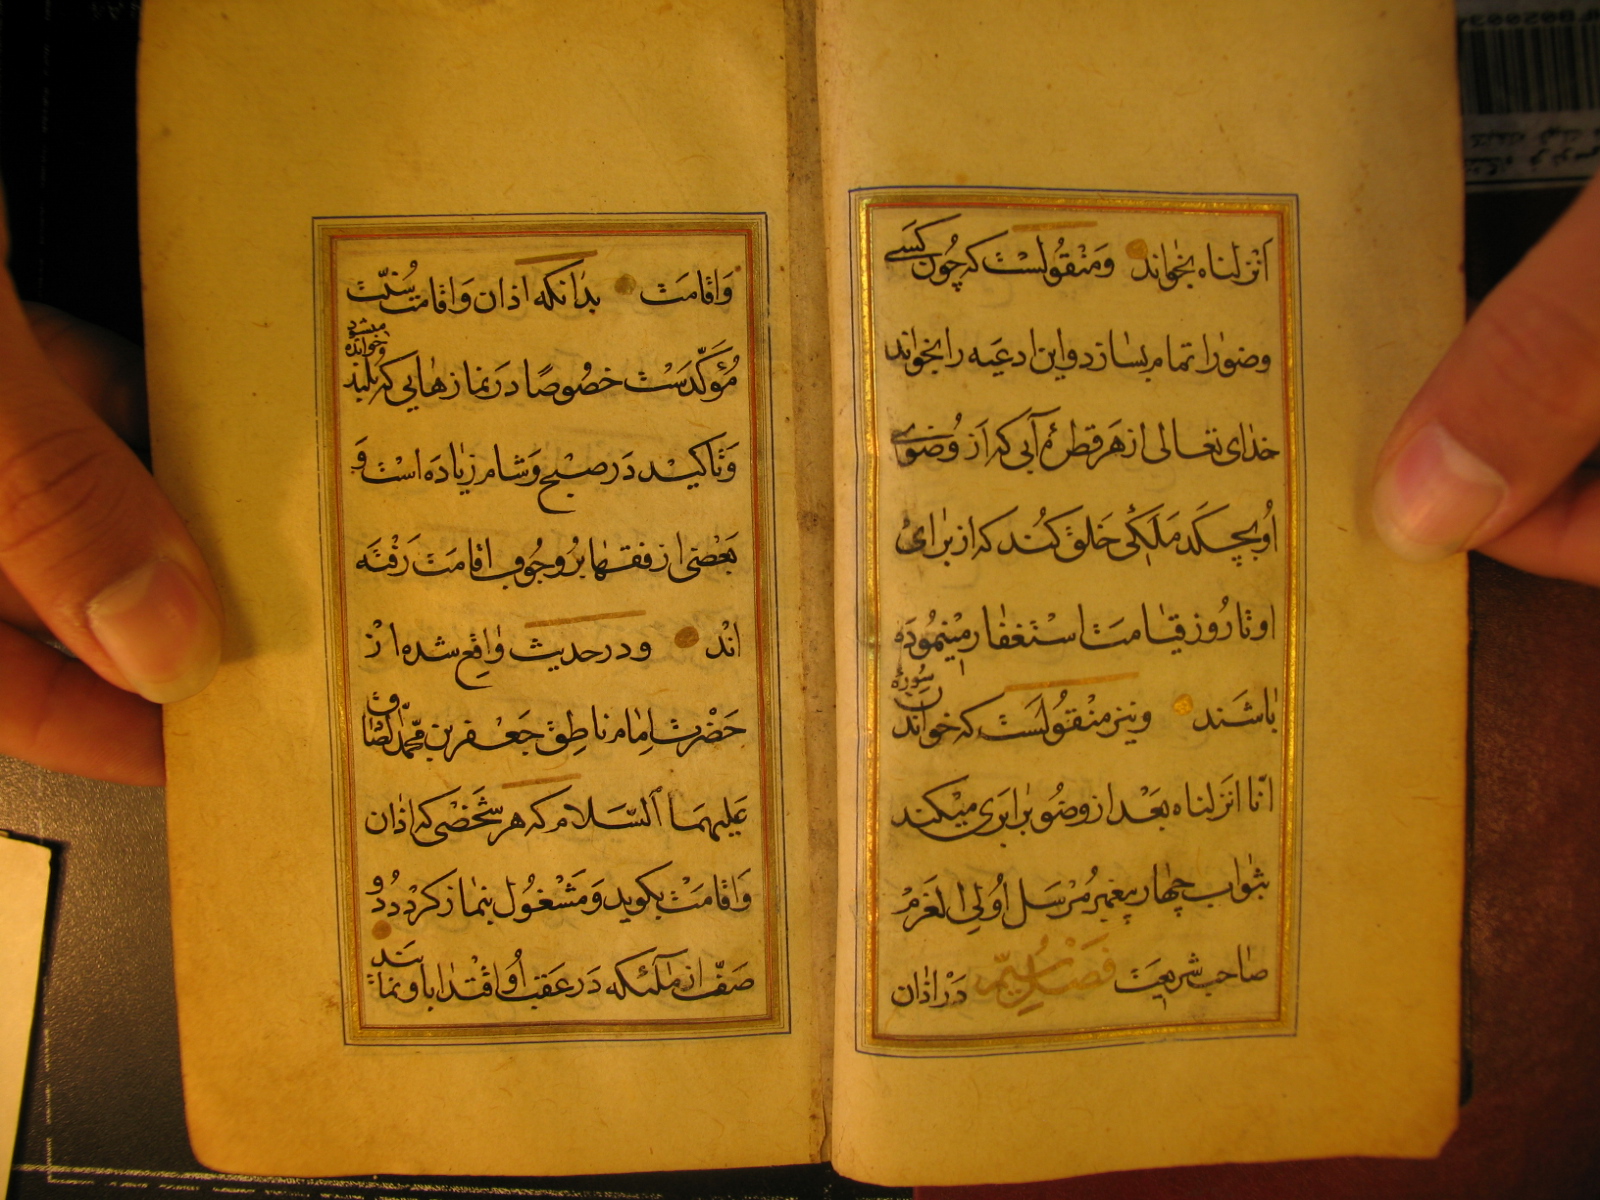 انزلناه بخواند ومنقولست که چون کسی
وضو را تمام بسازد و این ادعیه را بخواند
خدای تعالی از هر قطرهٔ آبی که از وضوی
او بچکد ملکی خلق کند که از برای
او تا روز قیامت استغفار مینموده
باشند ونیز منقولست که خواندن سورهٔ
انا انزلناه بعد از وضو برابری میکند
بثواب چهار پیغمبر مرسل اولی العزم
صاحب شریعت فصل سیم در اذان
واقامت بدانکه اذان واقامت سنت
مؤکدست خصوصا در نمازهایی که بلند خوانده میشود
وتاکید در صبح وشام زیاده است و
بعضی از فقها بر وجوب اقامت رفته
اند ودر حدیث واقع شده از
حضرت امام ناطق جعفر بن محمد الصادق
علیهما السلام که هر شخصی که اذان
واقامت بگوید ومشغول بنماز کردد دو
صف از ملائکه در عقب او اقتدا باو نمایند